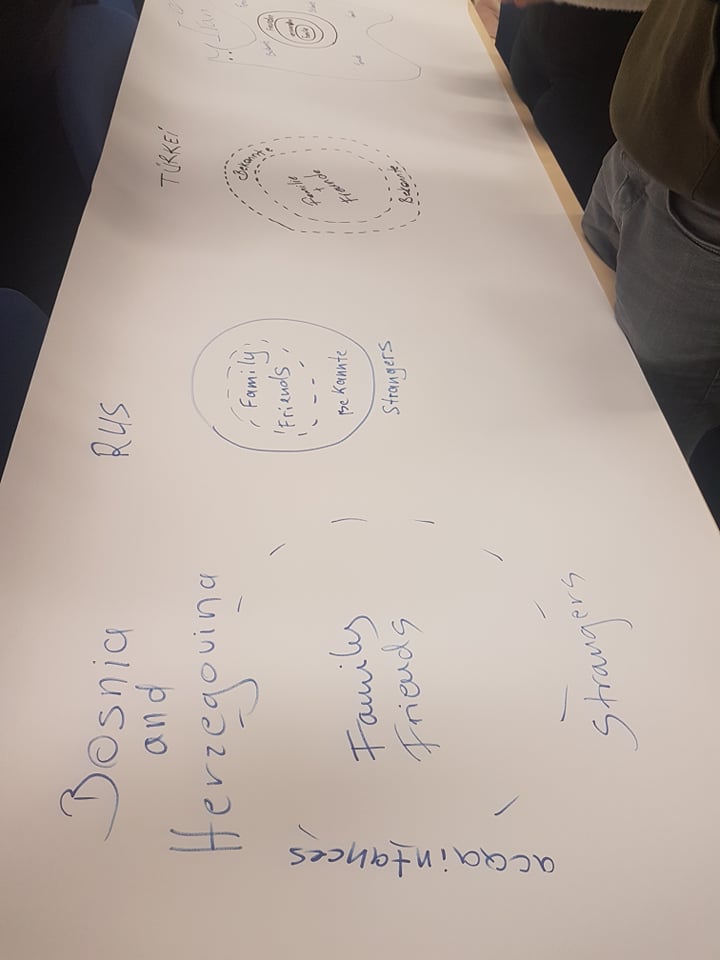 TÜRKEÍ
Bekannte
Familie
+
Freunde
Bekannte
RUS
Family
Friends
Bekannte
Strangers
Bosnia
and
Herzegovina
Family
Friends
acqaintances
Strangers